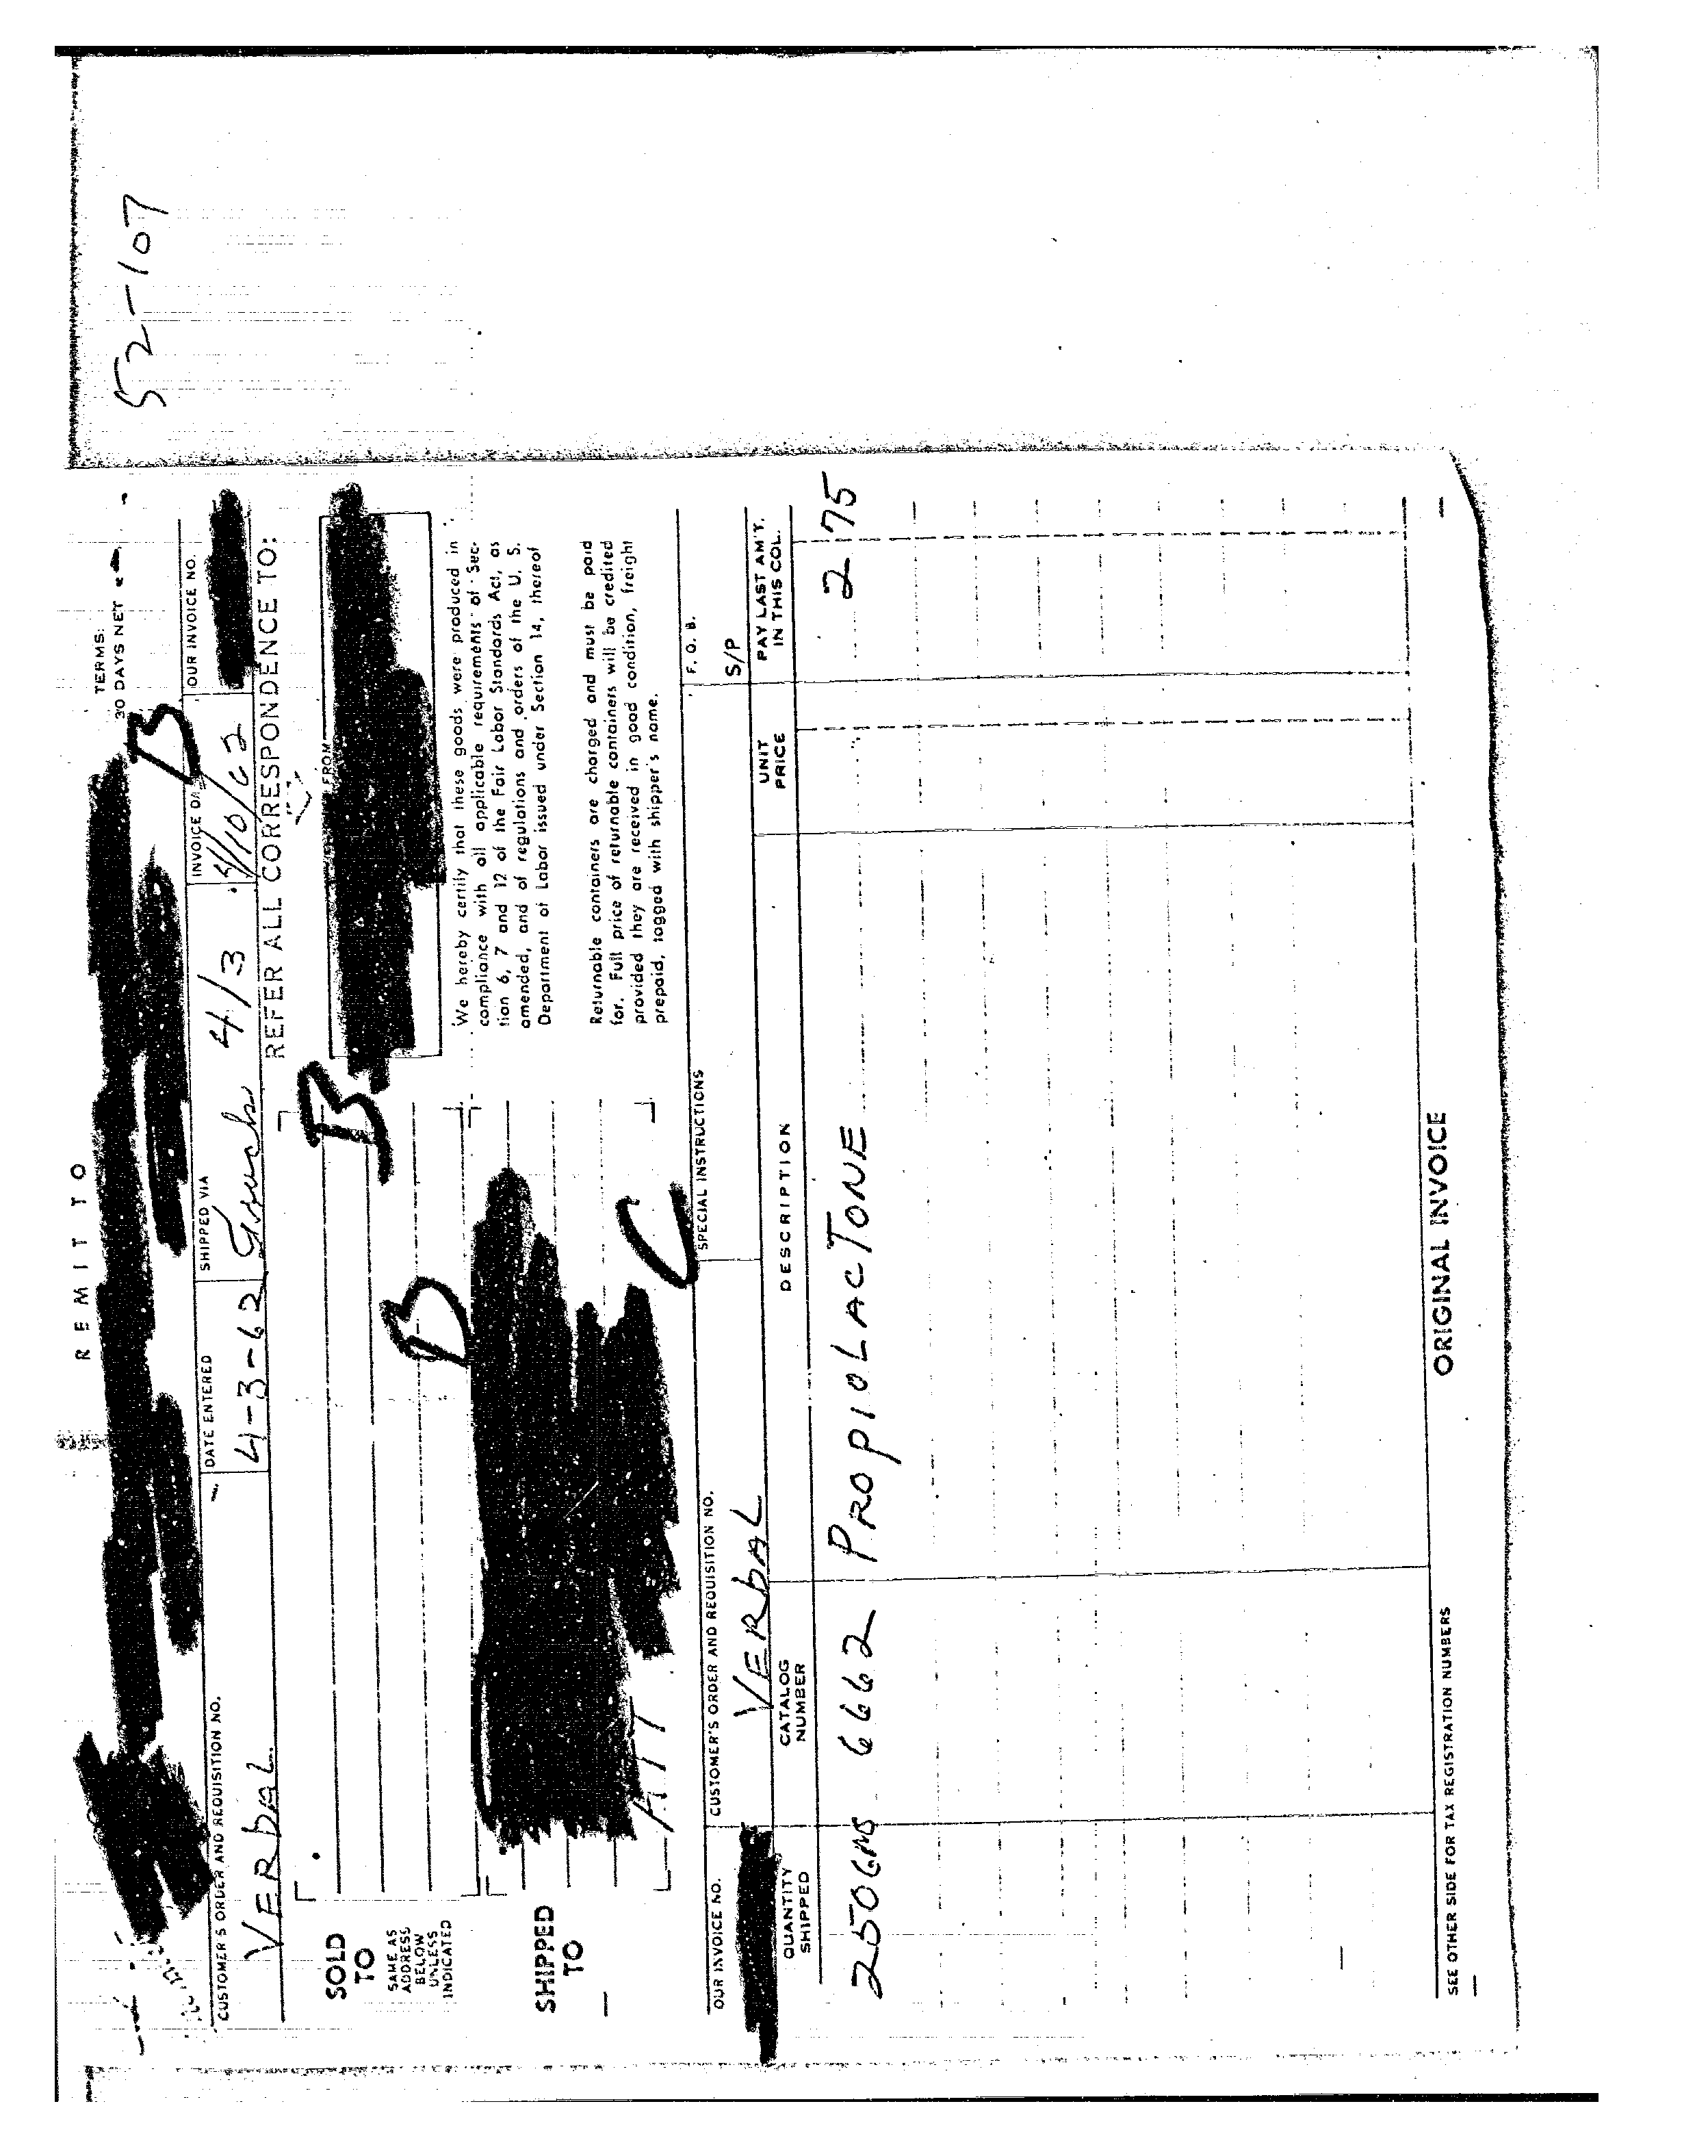 52-107
REMIT TO
TERMS:
30 DAYS NET
CUSTOMER'S ORDER AND REQUISITION NO.
VERbAL
DATE ENTERED
4-3-62
SHIPPED VIA
4/3
INVOICE DA
4/10/62
OUR INVOICE NO.
REFER ALL CORRESPONDENCE TO:
FROM
SOLD
TO
SAME AS
ADDRESS
BELOW
UNLESS
INDICATED
We hereby certify that these goods were produced in
compliance with all applicable requirements of Sec-
tion 6, 7 and 12 of the Fair Labor Standards Act, as
amended, and of regulations and orders of the U. S.
Department of Labor issued under Section 14, thereof
SHIPPED
TO
ATT
Returnable containers are charged and must be paid
for. Full price of returnable containers will be credited
provided they are received in good condition, freight
prepaid, tagged with shipper's name.
B
B
B
C
OUR INVOICE NO.
CUSTOMER'S ORDER AND REQUISITION NO.
VERbAL
SPECIAL INSTRUCTIONS
F. O. B.
S/P
QUANTITY
SHIPPED
CATALOG
NUMBER
DESCRIPTION
UNIT
PRICE
PAY LAST AM'T.
IN THIS COL.
250GMS 6662 PROPIOLACTONE 2 75
SEE OTHER SIDE FOR TAX REGISTRATION NUMBERS
ORIGINAL INVOICE